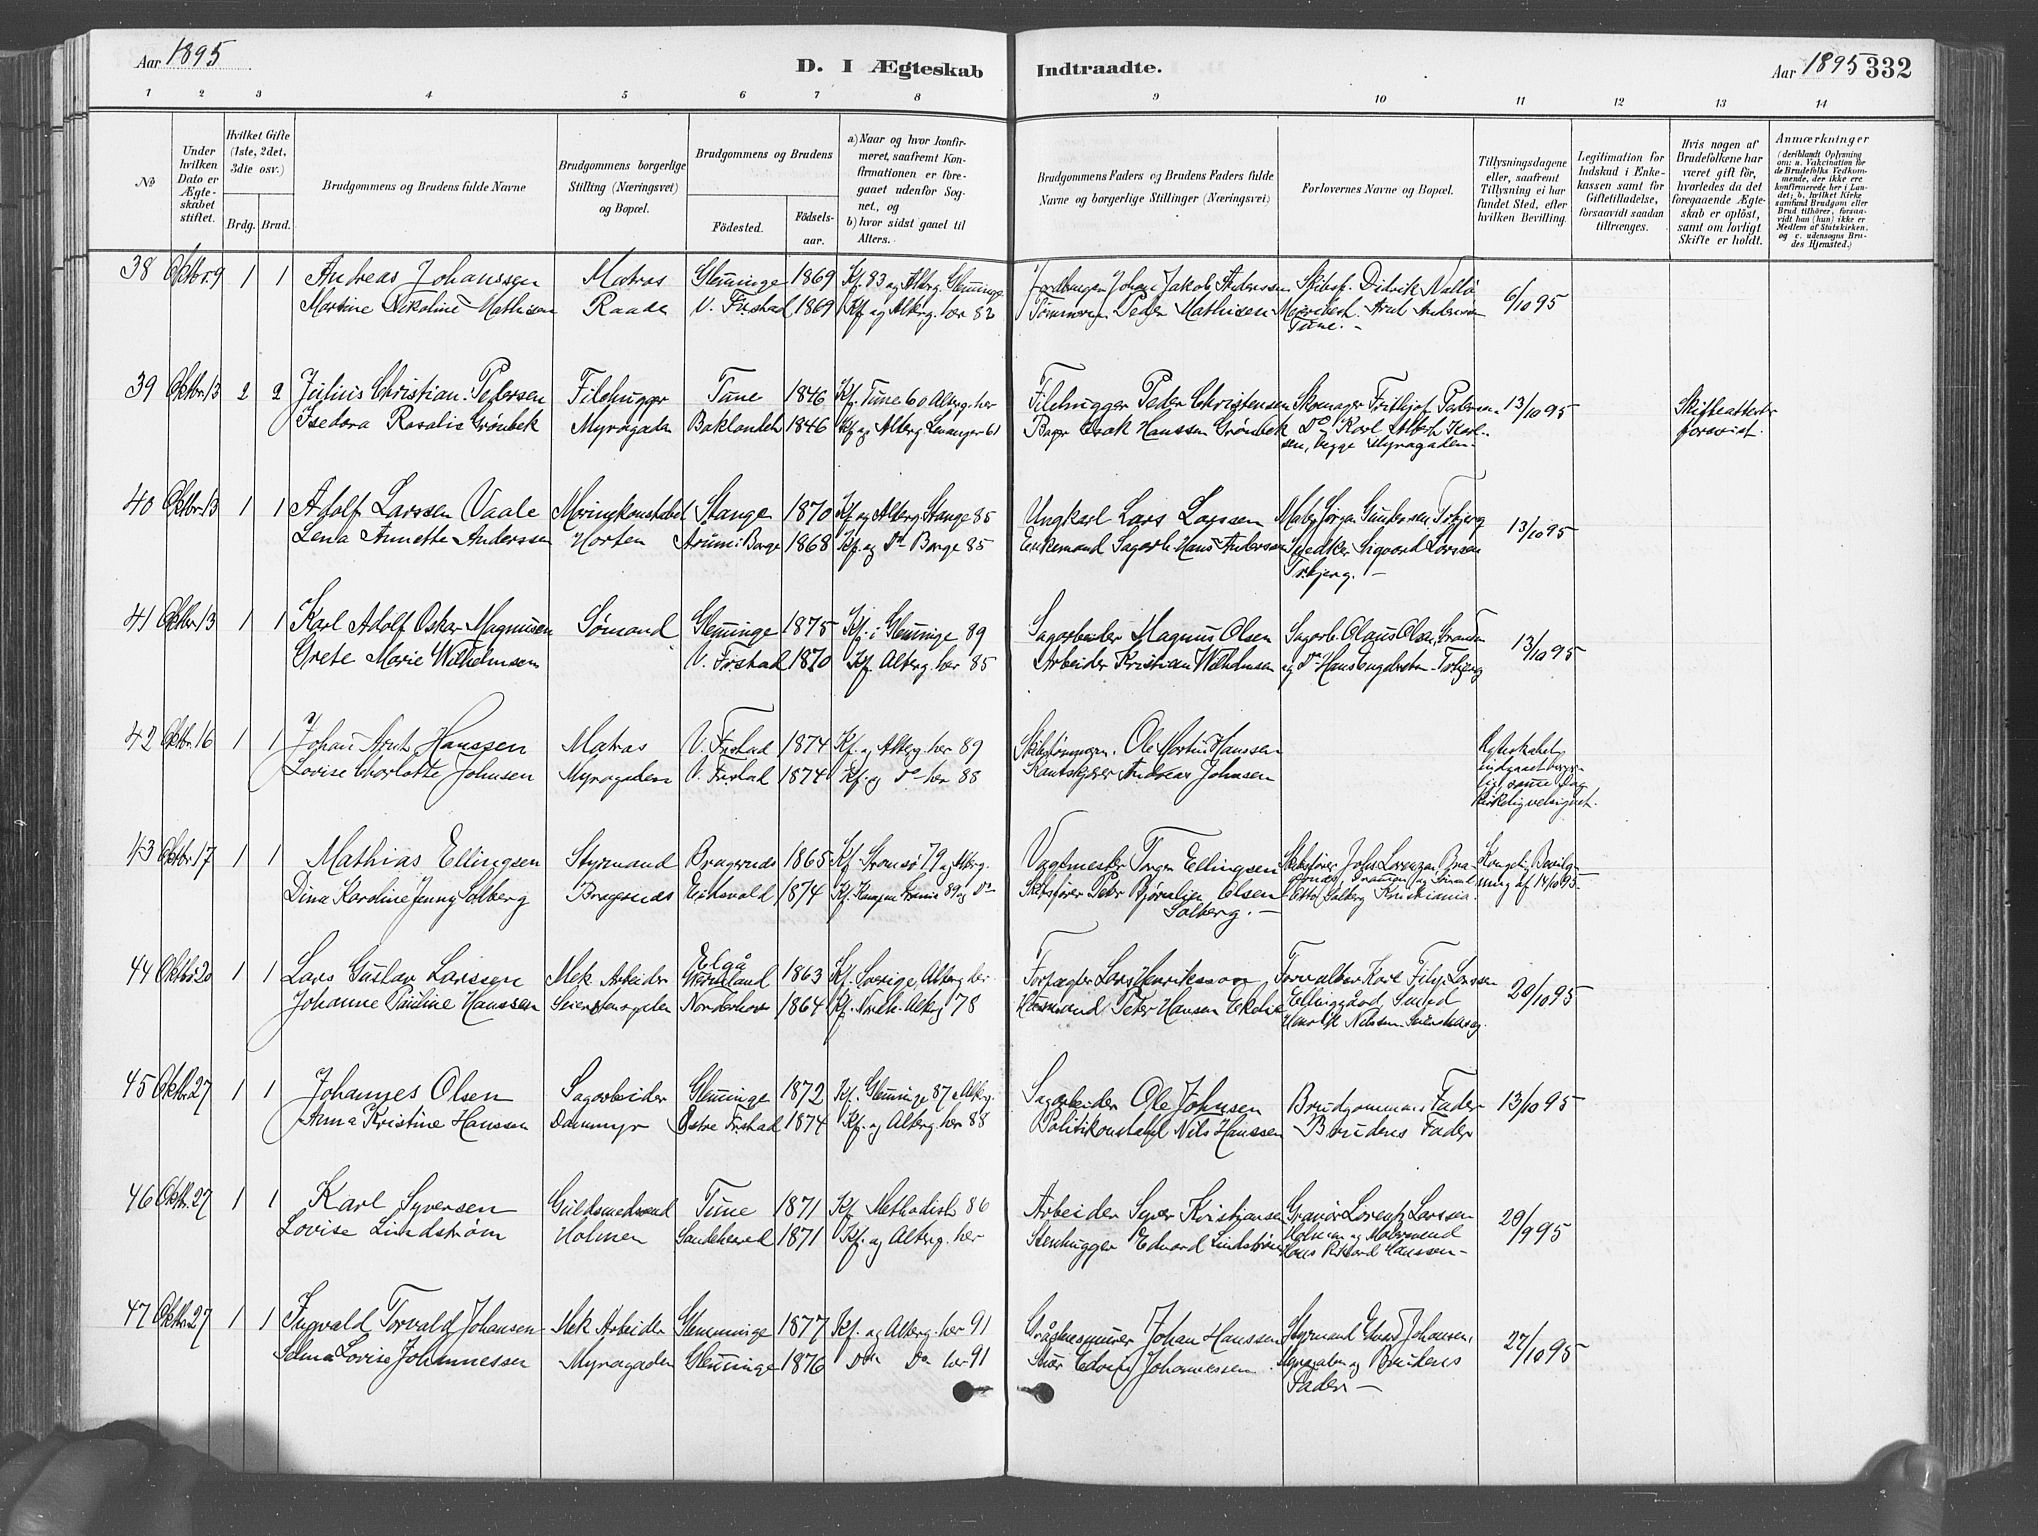 Aar 1895
D. I Ægteskab
Indtraadte.
Aar 1895 332
1 2 3 4 5 6 7 8 9 10 11 12 13 14
No
Under hvilken Dato er Ægteskabet stiftet.
Hvilket Gifte (1ste, 2det, 3die osv.)
Brdg. Brud.
Brudgommens og Brudens fulde Navne
Brudgommens borgerlige Stilling (Næringsvei) og Bopæl.
Brudgommens og Brudens
Fødested. Fødselsaar.
a) Naar og hvor konfirmeret, saafremt Konfirmationen er foregaaet udenfor Sognet, og b) hvor sidst gaaet til Alters.
Brudgommens Faders og Brudens Faders fulde Navne og borgerlige Stillinger (Næringsvei)
Forlovernes Navne og Bopæl.
Tillysningsdagene eller, saafremt Tillysning ei har fundet Sted, efter hvilken Bevilling.
Legitimation for Indskud i Enkekassen samt for Giftetilladelse, forsaavidt saadan tiltrænges.
Hvis nogen af Brudefolkene har været gift før, hvorledes da det foregaaende Ægteskab er opløst, samt om lovligt Skifte er holdt.
Anmærkninger (deriblandt Oplysning om: a. Vakcination for de Brudefolks Vedkommende, der ikke ere konfirmerede her i Landet; b. hvilket Kirkesamfund Brudgom eller Brud tilhører, forsaavidt han (hun) ikke er Medlem af Statskirken, og c. udensogns Brudes Hjemsted.)
38 Oktbr. 9 1 1 Andreas Johanssen Matros Glemminge 1869 Kf. 83 og Alterg. Glemminge Johan Jakob Anderssen Skibsf. Didrik 6/10 95
Martine Nikoline Mathisen Raade V. Frstad 1869 Kf. og Altrg. her 82 Peder Mathisen
Tune. -
39 Oktbr. 13 2 2 Julius Christian Pedersen Filehugger Tune 1846 Kf. Tune 60 Alterg. her Filehugger Peder Christensen Skomager Frithjof Pedersen 13/10 95
Isedora Rosalie Grønbek Myragaden Baklandet 1846 Kf og Alterg Levanger 61 Isak Hanssen Grønbek Do Karl Karlsen, begge Myragaden
Skifteattest forevist.
40 Oktbr. 13 1 1 Adolf Larssen Vaale Stange 1870 Kf og Alterg Stange 85 Ungkarl Lars Larssen Jørgen Gundersen, Torbjerg 13/10 95
Lena Annette Anderssen Horten Borge 1868 Kf. og Do Borge 85 Enkemand Sagarb. Hans Anderssen Snedker Sigvard Larssen
Trbjerg. -
41 Oktbr. 13 1 1 Karl Adolf Oskar Magnussen Sømand Glemminge 1875 Kf. i Glemminge 89 Sagarbeider Magnus Olsen Sagarb. Olaus Olsen 13/10 95
Grete Marie Wilhelmsen V. Frstad 1870 Kf. Alterg. her 85 Arbeider Kristian Wilhelmsen og Do Hans Trbjerg
42 Oktbr. 16 1 1 Johan Arnt Hanssen Matros V. Frstad 1874 Kf. og Alterg. her 89 Ole Martin Hanssen
Lovise Charlotte Johnsen Myragaden V. Frstad 1874 Kf. og Do her 88 Andreas Johnsen
Ægteskabet indgaaet borgerligt, samme Dag kirkelig velsignet.
43 Oktbr. 17 1 1 Mathias Ellingsen Styrmand Bragernæs 1865 Kf. Tromsø 79 og Alterg. Vagtmester Ellingsen Skibsfører Johs Lorenzen
Dina Karoline Jenny Solberg Bragernæs Eidsvold 1874 Kf. 89 og Do Skibsfører Peter Olsen Solberg. - Otto Solberg Kristiania.
Kongelig Bevilgning af 14/10 95
44 Oktbr. 20 1 1 Lars Gustav Larssen Mek Arbeider Elgå Wermland 1863 Kf. Sverige, Alterg her Lars Henriksson Forvalter Karl Filip Larssen 20/10 95
Johanne Pauline Hanssen Norderhov 1864 Kf. Alterg 78 Husmand Peter Hansen Smed
Henrik Nilssen
45 Oktbr. 27 1 1 Johannes Olsen Sagarbeider Glemminge 1872 Kf. Glemminge 87 Alterg. Sagarbeider Ole Johnsen Brudgommens Fader 13/10 95
Anna Kristine Hanssen Dammyr Østre Frstad 1874 Kf. og Alterg. her 88 Politikonstabel Nils Hanssen Brudens Fader
46 Oktbr. 27 1 1 Karl Syversen Guldsmedsvend Tune 1871 Kf Methodist 86 Arbeider Syver Kristiansen Gravør Lorentz Larssen 29/9 95
Lovise Lindstrøm Holmen Sandeherred 1871 Kf. og Alterg. her Stenhugger Edvard Lindstrøm Holmen og
Hans Rikard Hanssen -
47 Oktbr. 27 1 1 Ingvald Torvald Johansen Mek Arbeider Glemminge 1877 Kf. og Alterg. her 91 Johan Hanssen Styrmand Edvard Johansen, 27/10 95
Selma Lovise Johannessen Myragaden Glemminge 1876 Do Do her 91 Johannessen Myragaden og Brudens Fader -